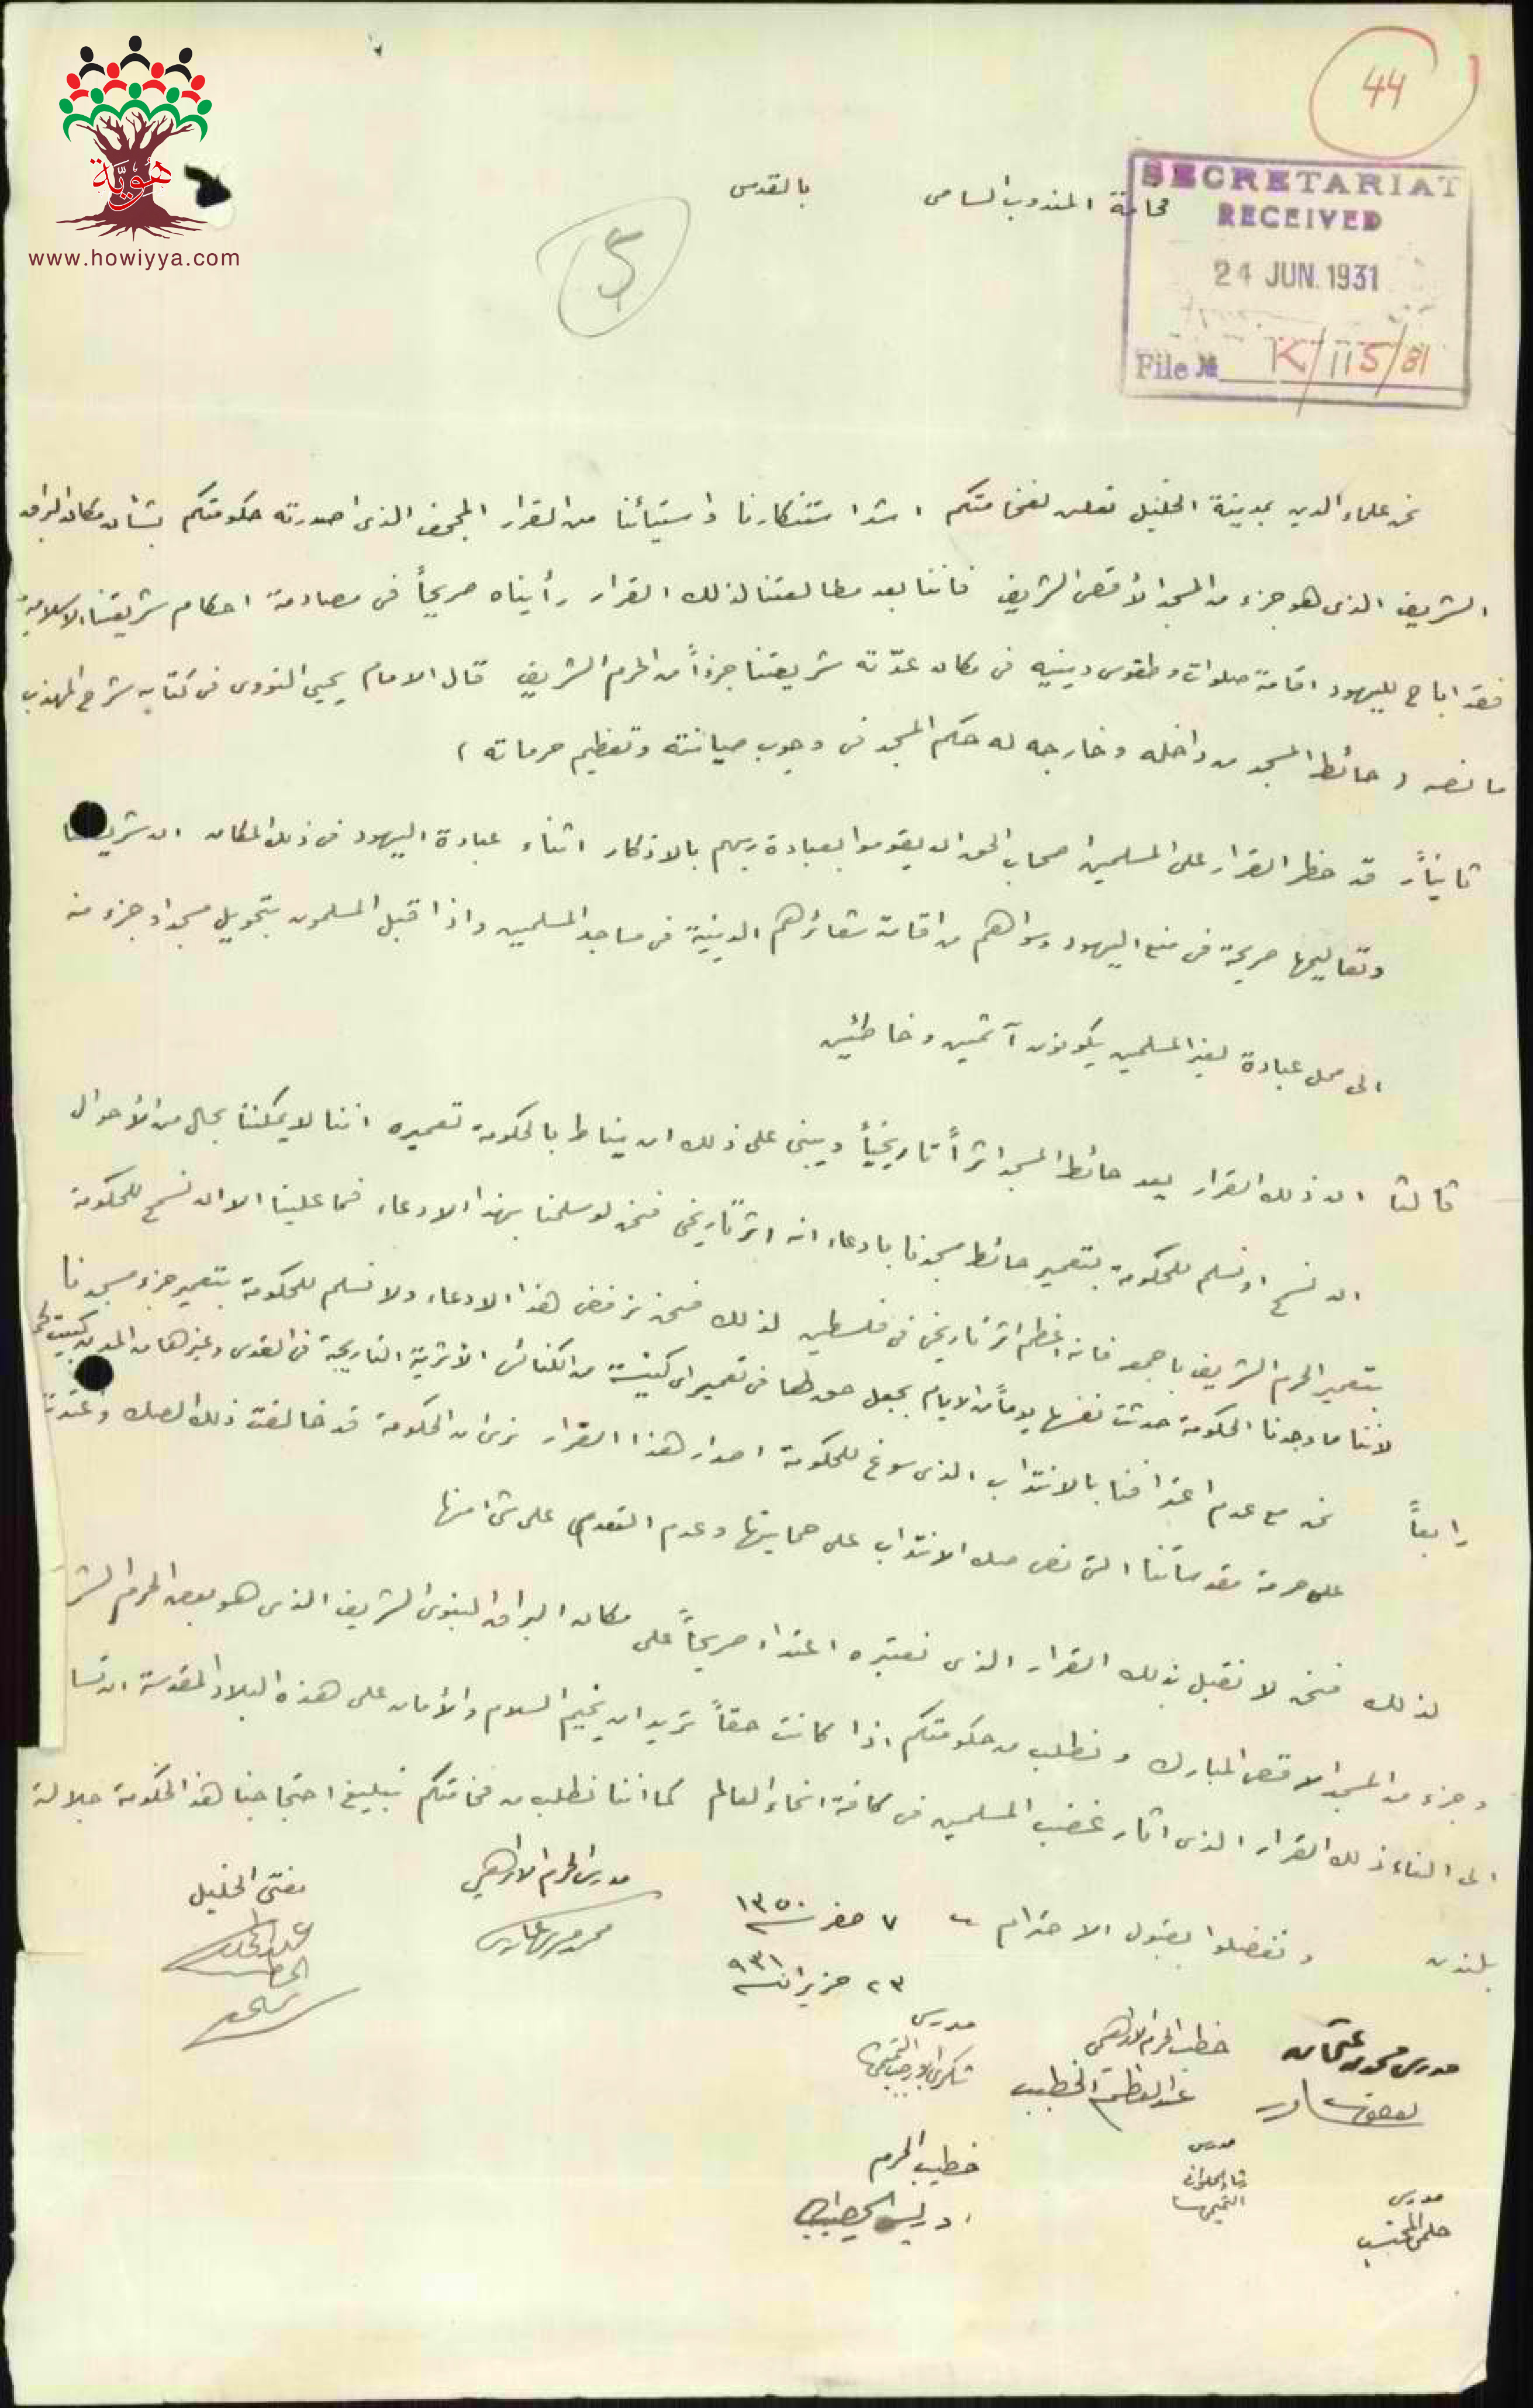 هُوِيَّة
www.howiyya.com
44
SECRETARIAT
RECEIVED
24 JUN. 1931
File № K/115/31
فخامة المندوب السامى بالقدس
5
نحن علماء الدين بمدينة الخليل نعلن لفخامتكم اشد استنكارنا واستيائنا من القرار المجحف الذى اصدرته حكومتكم بشأن مكان البراق
الشريف الذى هو جزء من المسجد الأقصى الشريف فاننا بعد مطالعتنا لذلك القرار رأيناه صريحاً فى مصادمة احكام شريعتنا الاسلامية
فقد اباح لليهود اقامة صلوات وطقوس دينيه فى مكان عدّته شريعتنا جزءاً من الحرم الشريف قال الامام يحيي النووى فى كتابه شرح المهذب
ما نصه ( حائط المسجد من داخله وخارجه له حكم المسجد فى وجوب صيانته وتعظيم حرماته )
ثانياً قد حظر القرار على المسلمين اصحاب الحق ان يقوموا بعبادة ربهم بالاذكار اثناء عبادة اليهود فى ذلك المكان ان
وتعاليمها صريحة فى منع اليهود وسواهم من اقامة شعائرهم الدينية فى مساجد المسلمين واذا قبل المسلمون بتحويل مسجد او جزء منه
الى محل عبادة لغير المسلمين يكونون آثمين وخاطئين
ثالثا ان ذلك القرار يعد حائط المسجد اثراً تاريخياً ويبنى على ذلك ان يناط بالحكومة تعميره اننا لا يمكننا بحال من الأحوال
ان نسمح او نسلم للحكومة بتعمير حائط مسجدنا بادعاء انه اثر تاريخى فنحن لو سلمنا بهذا الادعاء فما علينا الا ان نسمح للحكومة
بتعمير الحرم الشريف باجمعه فانه اعظم اثر تاريخى فى فلسطين لذلك فنحن نرفض هذا الادعاء ولا نسلم للحكومة بتعمير جزء مسجدنا
لأننا ما وجدنا الحكومة حدثت نفسها يوماً من الايام بجعل حق لها فى تعمير اى كنيسة من الكنائس الأثرية التاريخية فى القدس وغيرها من المدن كبيت لحم
رابعاً نحن مع عدم اعترافنا بالانتداب الذى سوغ للحكومة اصدار هذا القرار نرى ان الحكومة قد خالفت ذلك الصك
على حرمة مقدساتنا التى نص صك الانتداب على حمايتها وعدم التعدى على شئ منها
لذلك فنحن لا نقبل بذلك القرار الذى نعتبره اعتداء صريحاً على مكان البراق النبوى الشريف الذى هو بعض الحرم
وجزء من المسجد الاقصى المبارك ونطلب من حكومتكم اذا كانت حقاً تريد ان يخيم السلام والأمان على هذه البلاد المقدسة ان
الى الغاء ذلك القرار الذى اثار غضب المسلمين فى كافة انحاء العالم كما اننا نطلب من فخامتكم تبليغ احتجاجنا هذا لحكومة جلالة
بلندن وتفضلوا بقبول الاحترام ٧ صفر سنة ١٣٥٠
٢٣ حزيران سنة ٩٣١
مدرس الحرم الابراهيمي
مفتى الخليل
عبدالله
مدرس محمود عثمان
خطيب الحرم الابراهيمي
عبد العظيم الخطيب
مدرس
خطيب الحرم
ادريس الخطيب
مدرس
التميمي
مدرس
حلمى المحتسب